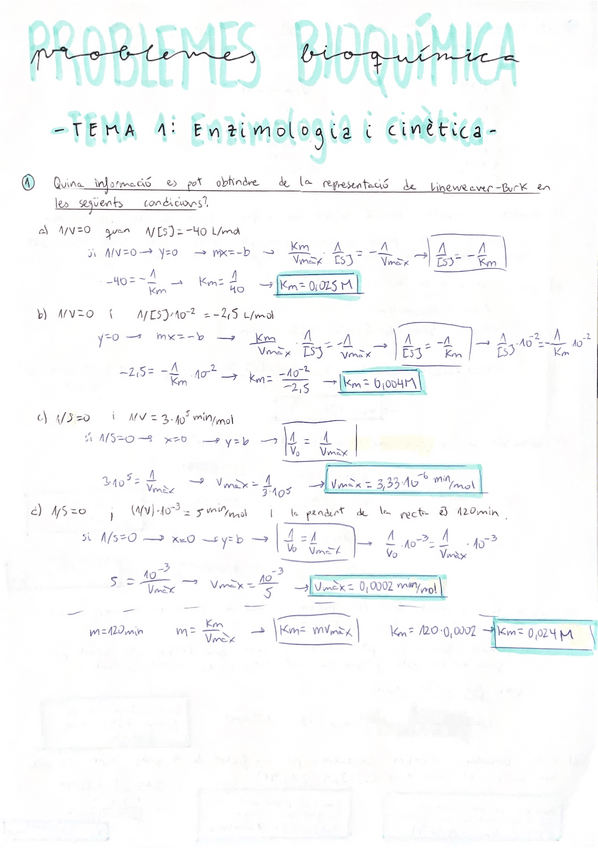 PROBLEMES BIOQUÍMICA
problemes bioquímica
- TEMA 1: Enzimologia i cinètica -
① Quina informació es pot obtindre de la representació de Lineweaver-Burk en
les següents condicions?.
a) 1/V=0 quan 1/[S]=-40 L/mol
si 1/V=0 → y=0 → mx=-b → Km/Vmàx · 1/[S] = -1/Vmàx → 1/[S] = -1/Km
-40 = -1/Km → Km = 1/40 → Km = 0,025 M
b) 1/V=0 i 1/[S]·10⁻² = -2,5 L/mol
y=0 → mx=-b → Km/Vmàx · 1/[S] = -1/Vmàx → 1/[S] = -1/Km → 1/[S]·10⁻² = -1/Km 10⁻²
-2,5 = -1/Km · 10⁻² → Km = -10⁻²/-2,5 → Km = 0,004 M
c) 1/S=0 i 1/V = 3·10⁵ min/mol
si 1/S=0 → x=0 → y=b → 1/V₀ = 1/Vmàx
3·10⁵ = 1/Vmàx → Vmàx = 1/3·10⁵ → Vmàx = 3,33·10⁻⁶ min/mol
d) 1/S=0 i (1/V)·10⁻³ = 5 min/mol i la pendent de la recta és 120min.
si 1/S=0 → x=0 → y=b → 1/V₀ = 1/Vmàx → 1/V₀ · 10⁻³ = 1/Vmàx · 10⁻³
5 = 10⁻³/Vmàx → Vmàx = 10⁻³/5 → Vmàx = 0,0002 min/mol
m=120min m = Km/Vmàx → Km = mVmàx Km = 120·0,0002 → Km = 0,024 M